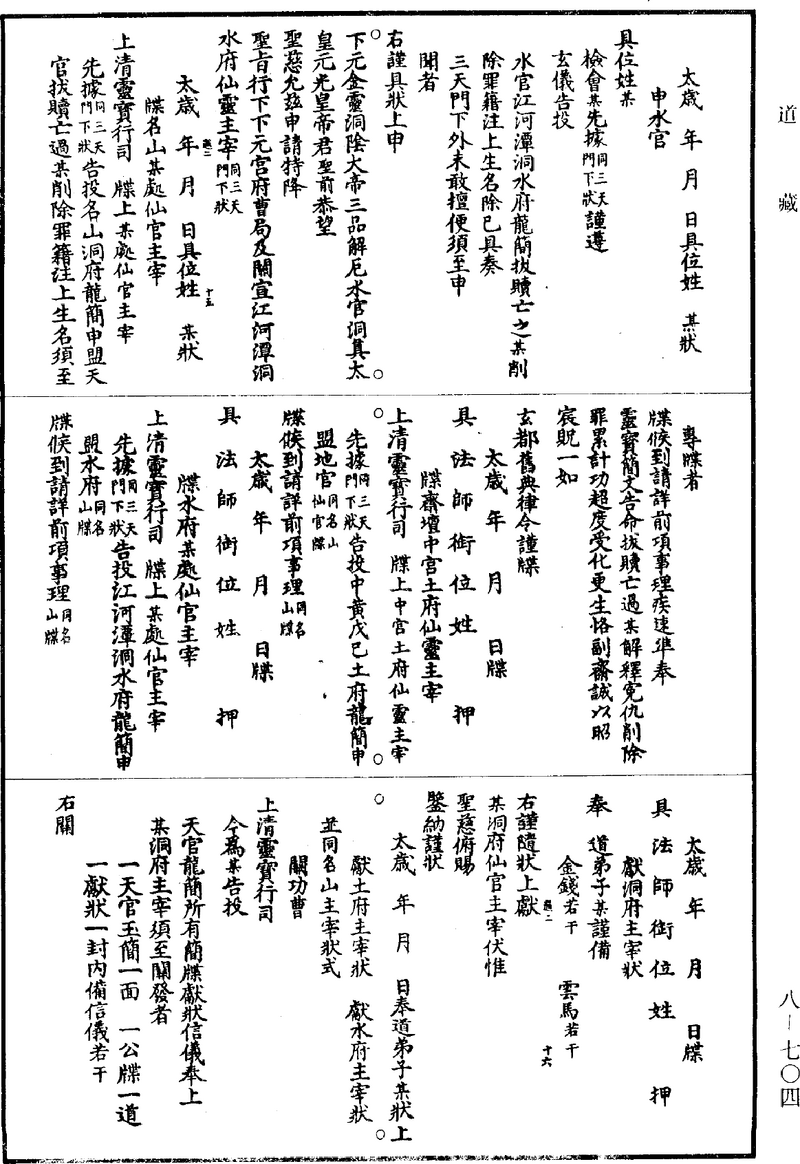 道藏
太歲　年　月　日具位姓　某狀
申水官
具位姓某
檢會某先據同三天門下狀謹遵
玄儀告投
水官江河潭洞水府龍簡拔贖亡之某削
除罪籍注上生名除已具奏
三天門下外未敢擅便須至申
聞者
右謹具狀上申
下元金靈洞陰大帝三品解厄水官洞真太
皇元光皇帝君聖前恭望
聖慈允玆申請特降
聖旨行下下元宮府曹局及關宣江河潭洞
水府仙靈主宰同三天門下狀
太歲　年　月　日具位姓　某狀
十五
牒名山某處仙官主宰
上清靈寶行司　牒上某處仙官主宰
先據同三天門下狀告投名山洞府龍簡申盟天
官拔贖亡過某削除罪籍注上生名須至
專牒者
牒候到請詳前項事理疾速準奉
靈寶簡文告命拔贖亡過某解釋冤仇削除
罪累計功超度受化更生恪副齋誠以昭
宸貺一如
玄都舊典律令謹牒
太歲　年　月　日牒
具法師銜位姓　押
牒齋壇中宮土府仙靈主宰
上清靈寶行司　牒上中宮土府仙靈主宰
先據同三天門下狀告投中黃戊己土府龍簡申
盟地官同名山仙官牒
牒候到請詳前項事理同名山牒
太歲　年　月　日牒
具法師銜位姓　押
牒水府某處仙官主宰
上清靈寶行司　牒上某處仙官主宰
先據同三天門下狀告投江河潭洞水府龍簡申
盟水府同名山牒
牒候到請詳前項事理同名山牒
太歲　年　月　日牒
具法師銜位姓　押
獻洞府主宰狀
奉道弟子某謹備
金錢若干　雲馬若干
十六
右謹隨狀上獻
某洞府仙官主宰伏惟
聖慈俯賜
鑒納謹狀
太歲　年　月　日奉道弟子某狀上
獻土府主宰狀　獻水府主宰狀
並同名山主宰狀式
關功曹
上清靈寶行司
今為某告投
天官龍簡所有簡牒獻狀信儀奉上
某洞府主宰須至關發者
一天官玉簡一面　一公牒一道
一獻狀一封內備信儀若干
右關
八—七〇四